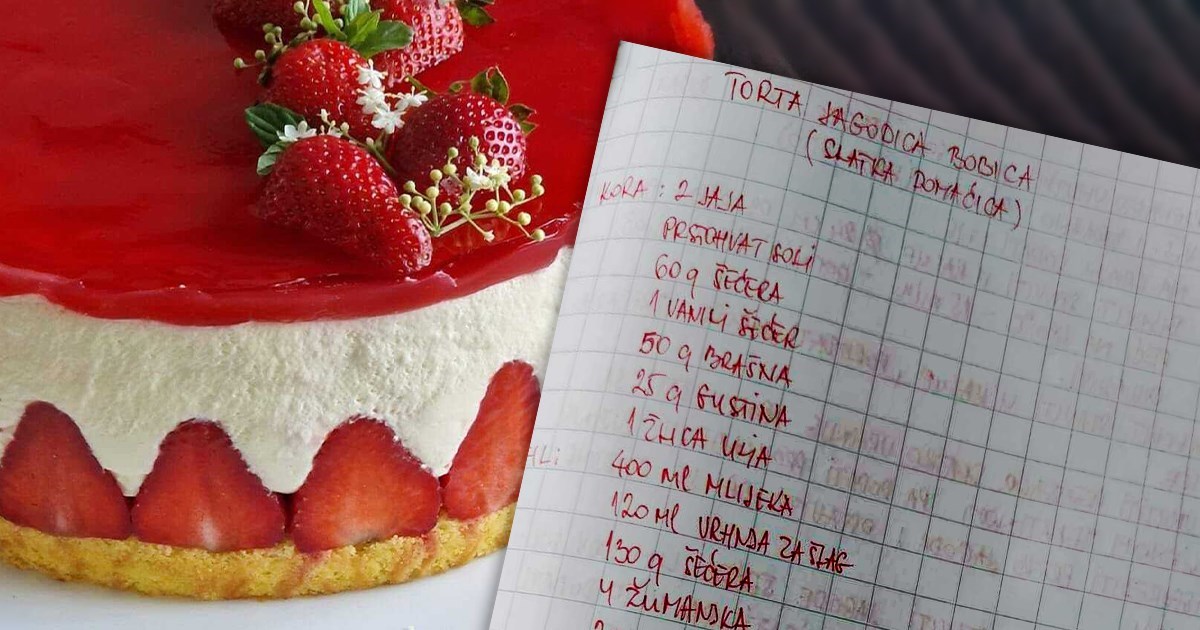 TORTA JAGODICA BOBICA
(SLATKA DOMAĆICA)
KORA: 2 JAJA
PRSTOHVAT SOLI
60 g ŠEĆERA
1 VANILI ŠEĆER
50 g BRAŠNA
25 g GUSTINA
1 ŽLICA ULJA
400 ml MLIJEKA
120 ml VRHNJA ZA ŠLAG
130 g ŠEĆERA
4 ŽUMANJKA